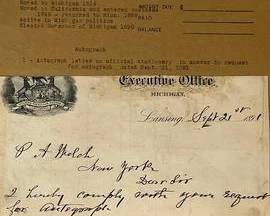 Moved to Michigan 1854
Moved to California and entered
1868 - returned to Mich. 1868
Active in Mich politics
Elected Governor of Michigan 1890
AMOUNT DUE $
PAID
BALANCE
Autograph
1 - Autograph letter on official stationery in answer to request
for autograph dated Sept. 21, 1891
Executive Office
MICHIGAN.
Lansing, Sept 21st 1891
P. A. Welch
New York
Dear Sir
I hereby comply with your request
for Autograph